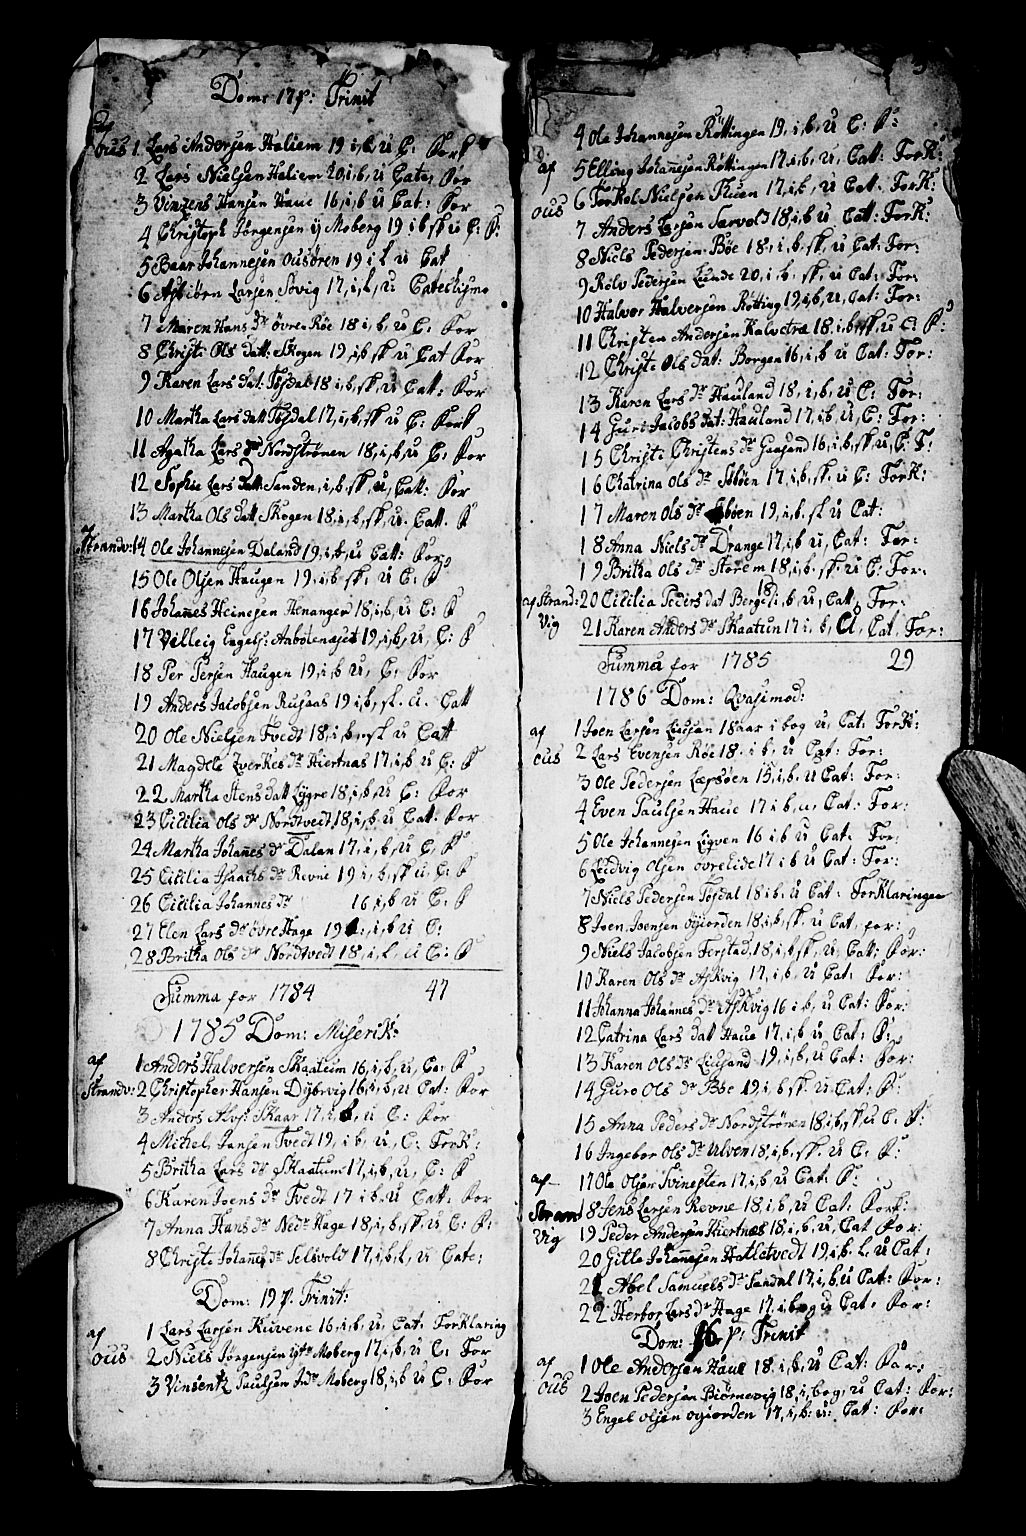 Dom: 17 p: Trinit
af
ous 1 Lars Andersen Haliem 19 i b, u C: Fork
2 Lars Nielsen Haliem 20 i b, u Cate, For
3 Vinzens Hansen Haue 16, i b, u Cat: For
4 Christoph Jörgensen ÿ Moberg 19 i b sk u C: F:
5 Baar Johannesen Ousören 19 i b u Cat
6 Asbiörn Larsen Sövig 17, i, b, u Cateshismo
7 Maren Hans dr Övre Röe 18 i, b, u C: For
8 Christi Ols datt: Skogen 19, i b sk u Cat For
9 Karen Lars dat: Tosdal 18 i, b, sk, u Catt: For
10 Martha Lars datt Tosdal 17, i, b, sk u C: Fork
11 Agatha Lars dr Nordströnen 18, i, b, u C: For
12 Sophie Lars datt: Sanden, i, b, sk, u, Catt: For
13 Martha Ols datt Skogen 18, i, b, sk, u. Catt. F
Strandv: 14 Ole Johannesen Daland 19, i b, u Catt: For
15 Ole Olsen Haugen 19, i b sk, u C: F
16 Johañes Heinesen Henanger 18, i b, u C: F
17 Villeig Engels: Aabölenæset 19, i b, u, C: F
18 Per Persen Haugen 19, i b u, C: For
19 Anders Jacobsen Rusaas 19 i b, sk. u. Catt
20 Ole Nielsen Tvedt 18, i b, sk u Catt
21 Magdele Sverkes dr Hiertnas 17, i b, u C: F
22 Martha Stens datt Lygre 18, i b, u C: For
23 Cicilia Ols dr Nordtvedt 18, i b, u Catt: For
24 Martha Johañes dr Dalan 17, i, b, u C, F
25 Cicilia Isaachs dr Revne 19 i, b, sk u, C: F
26 Cicilia Johannes dr 16 i, b, u C: F
27 Elen Lars dr Övre Hage 19 i, b u C:
28 Britha Ols dr Nordtvedt 18, i, b, u C: F
Summa for 1784 47
1785 Dom: Miserik:
af 1 Anders Halversen Skaatum 16, i, b, u, C: F
Strandv: 2 Christopher Hansen Dybvig 16, i b, u Cat: For
3 Anders Alvs: Skaar 17, i, b, u C: For
4 Michel Jansen Tvedt 19, i b, u, C: Fork:
5 Britha Lars dr Skaatum 17, i, b, u, C: F
6 Karen Joens dr Tvedt 17 i b, u Catt: For
7 Anna Hans dr Nedr Hage 18, i b, sk, u C: F:
8 Christi Johañes dr Selsvold 17, i b, k, u Cate:
Dom: 19 p. Trinit:
af 1 Lars Larsen Ruvene 16, i b, u Cat: Forklaring
ous 2 Niels Jörgensen ytr Moberg 17, i b, u C: For
3 Vinsentz Paulsen Indr Moberg 18, i b u C: For
4 Ole Johannesen Röttingen 19, i, b, u C: F:
af 5 Elling Johannesen Röttingen 17, i b, u, Catt: Fork:
ous 6 Torkel Nielsen Tluen 17, i b, u Catt. Fork:
7 Anders Larsen Særvold 18, i b u Catt: Fork:
8 Niels Pedersen Böe 18, i, b, sk, u Cat: For:
9 Rolv Pedersen Lunde 20, i b, sk, u Cat: For:
10 Halvor Halversen Rötting 19, i b, u, Cat: For:
11 Christen Andersen Kalvetræ 18. i b, sk, u C: F:
12 Christi Ols dat: Borgen 16, i, b u Cat: For:
13 Karen Lars dr Hauland 18, i, b, u C: For:
14 Guri Jacobs dat: Hauland 17, i b, u, C: For:
15 Christi Christens dr Gaasand 16, i b, sk, u, C: F:
16 Chatrina Ols dr Söböen 17, i b, sk. u C: Fork:
17 Maren Ols dr Söböen 19, i, b. sk u Cat:
18 Anna Niels dr Drange 17, i, b u, Cat: For:
19 Britha Ols dr Storem 18, i b, sk. u C: For:
af Strand: 20 Cicilia Peders dat Berge 18 i, b, u, Catt, For:
Vig 21 Karen Anders dr Skaatun 17 i. b, u, Cat, For:
Summa for 1785 29
1786 Dom: Qvasimod:
af 1 Joen Larsen Liusan 18 aar i bog u, Cat: Fork:
ous 2 Lars Evensen Röe 18. i b, u Cat: For:
3 Ole Pedersen Lepsöen 15, i b. u Cat: For:
4 Even Paulsen Haue 17 i b, u, Cat: For:
5 Ole Johannesen Ligven 16 i b u Cat: For:
6 Leidvig Olsen övre Eide 17 i b u Cat: For:
7 Niels Pedersen Tosdal 18 i b, u Cat: Forklaringen
8 Joen Joensen Ogiorden 18, i b, sk. u Cat, for:
9 Niels Jacobsen Ferstad, 18, i b, sk, u, Catt: For:
10 Karen Ols dr Askvig 17, i b, u Cat: For:
11 Johanna Johannes dr Askvig 16 i b, u Cat: For:
12 Catrina Lars datt Haue 17, i b, u Cat: F:
13 Karen Ols dr Liusand 19, i b, u Cat: For:
14 Guro Ols dr Böe 19, i b sk. u Cat: F:
15 Anna Peders dr Nordströnen 18, i b, sk u C: F:
16 Ingebor Ols dr Ulven 18, i b, sk. u C, F:
af 17 Ole Olsen Svinesten 17, i b, u Cat: F:
Stran 18 Jens Larsen Revne 18, i b, u Cat: Fork:
Vig 19 Peder Andersen Hiertnæs 18, i b, u Cat For:
20 Gitle Johannesen Hatletvedt 19, i b. k. u Cat:
21 Abel Samuels dr Sandal 17, i, b u Cat: For:
22 Herbor Lars dr Hage 17, i bog u Cat: For:
Dom: 16 p: Trinit
af 1 Ole Andersen Haue 18. i, b, u Cat: For:
ous 2 Joen Pedersen Biörnevig 18, i bog, u Cat: For:
3 Engel Olsen Ogiorden 17, i, b: u: Cat: For: